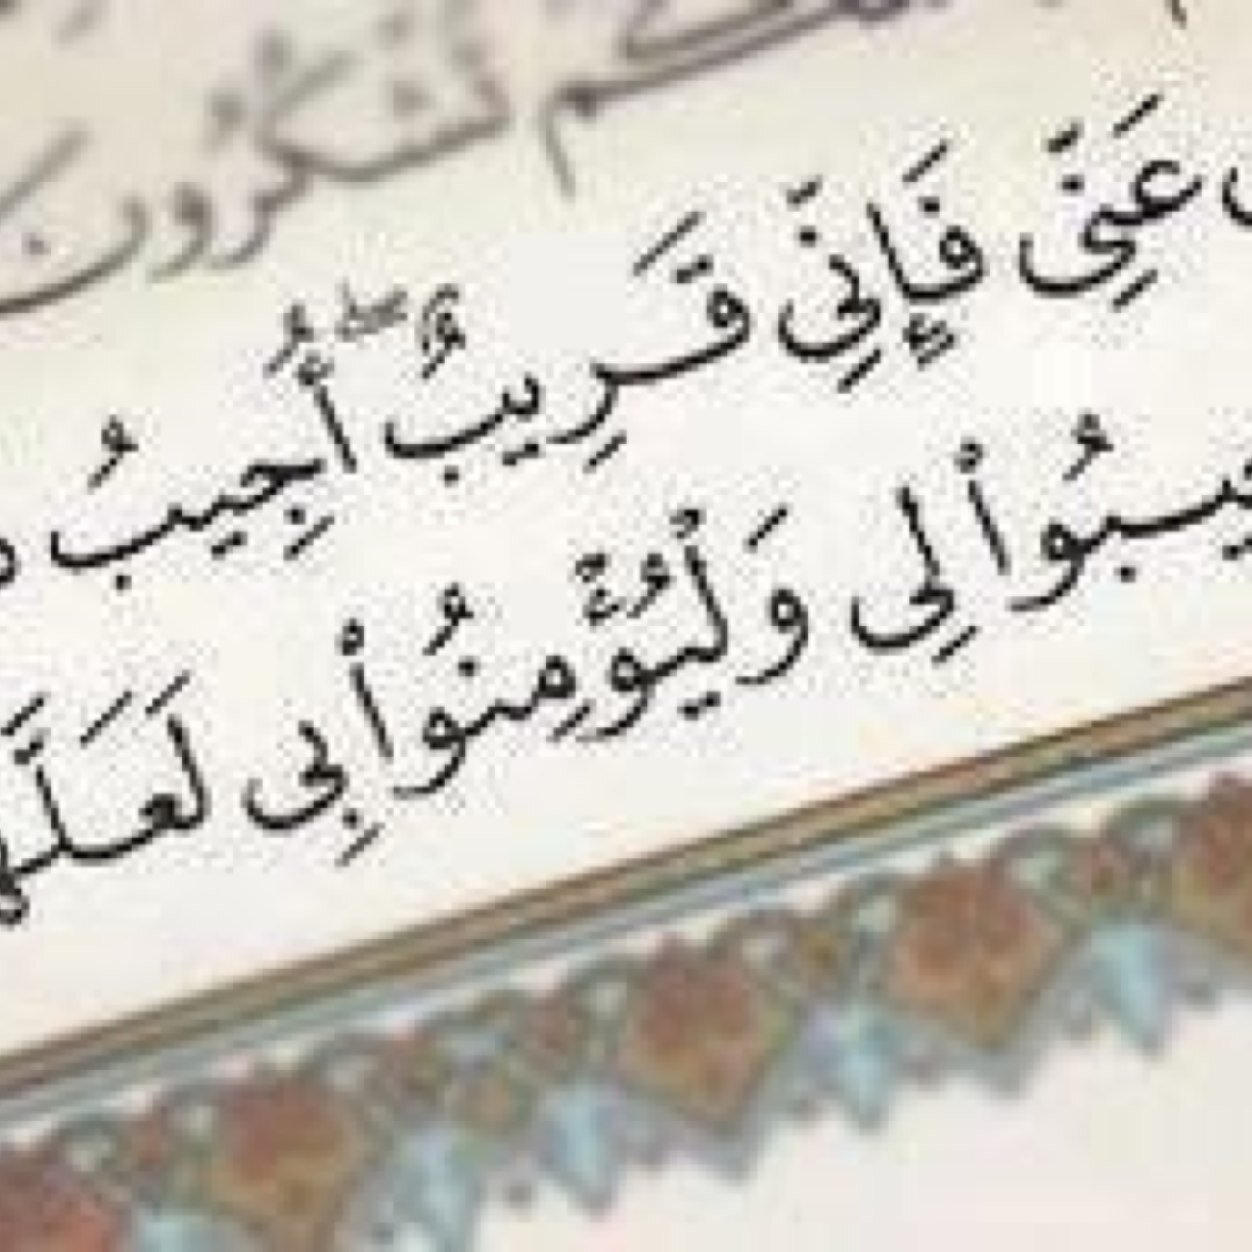 تشكرون
عَنِّى فَإِنِّى قَرِيبٌ ۖ أُجِيبُ
يبُوا۟ لِى وَلْيُؤْمِنُوا۟ بِى لَعَلَّه